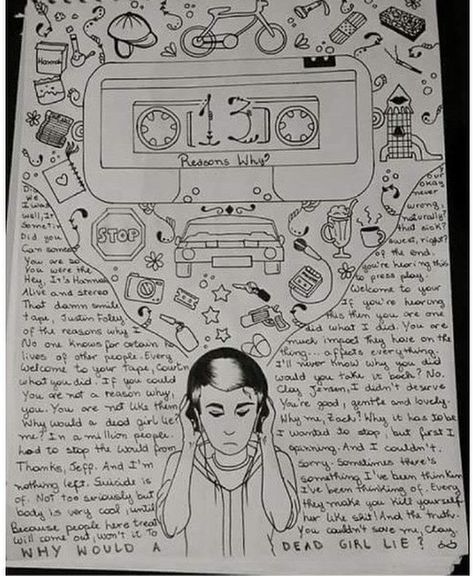 Hannah
13
Reasons Why?
STOP
Did
We
I was
well, I
Sometim
Did you
Can someo
You are so
You were the
Hey, It's Hannah
Alive and stereo
That damn smile
tape, Justin Foley
of the reasons why I
No one knows for certain h
lives of other people. Every
Welcome to your tape, Courtn
what you did. If you could
You are not a reason why,
you. You are not like them
Why would a dead girl lie?
me? In a million people.
had to stop the world from
Thanks, Jeff. And I'm
nothing left. Suicide is
of. Not too seriously but
body is very cool, until
Because people here treat
Will come out, won't it to
our
okay
never
wrong,
naturally?
that sick?
sweet, right?
of the end.
you're hearing this
to press play.
Welcome to your
If you're hearing
this then you are one
did what I did. You are
much impact they have on the
thing... affects everything.
I'll never know why you did
would you take it back? No.
Clay Jensen, I didn't deserve
You're good, gentle and lovely.
Why me, Zach? Why it has to be
I wanted to stop, but first I
spinning. And I couldn't.
sorry. Sometimes there's
something I've been thinkin
I've been thinking of. Every
they make you kill yourself
her like shit! And the truth.
You couldn't save me, Clay.
WHY WOULD A DEAD GIRL LIE?